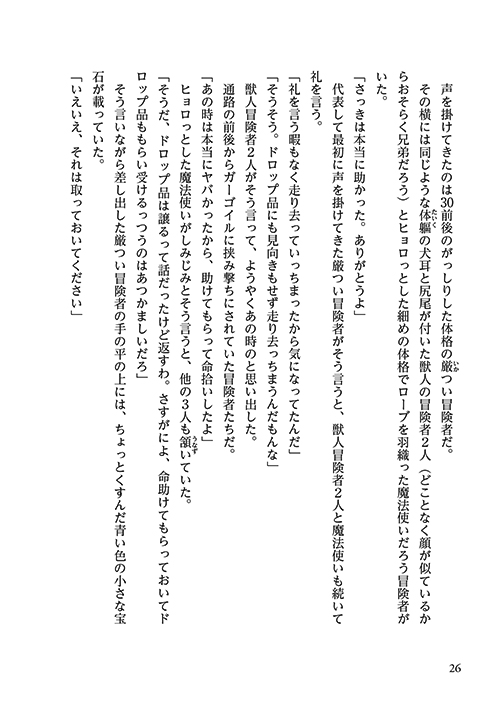 声を掛けてきたのは30前後のがっしりした体格の厳つい冒険者だ。
　その横には同じような体躯の犬耳と尻尾が付いた獣人の冒険者２人（どことなく顔が似ているか
らおそらく兄弟だろう）とヒョロっとした細めの体格でローブを羽織った魔法使いだろう冒険者が
いた。
「さっきは本当に助かった。ありがとうよ」
　代表して最初に声を掛けてきた厳つい冒険者がそう言うと、獣人冒険者２人と魔法使いも続いて
礼を言う。
「礼を言う暇もなく走り去っていっちまったから気になってたんだ」
「そうそう。ドロップ品にも見向きもせず走り去っちまうんだもんな」
　獣人冒険者２人がそう言って、ようやくあの時のと思い出した。
　通路の前後からガーゴイルに挟み撃ちにされていた冒険者たちだ。
「あの時は本当にヤバかったから、助けてもらって命拾いしたよ」
　ヒョロっとした魔法使いがしみじみとそう言うと、他の３人も頷いていた。
「そうだ、ドロップ品は譲るって話だったけど返すわ。さすがによ、命助けてもらっておいてド
ロップ品ももらい受けるっつうのはあつかましいだろ」
　そう言いながら差し出した厳つい冒険者の手の平の上には、ちょっとくすんだ青い色の小さな宝
石が載っていた。
「いえいえ、それは取っておいてください」
26